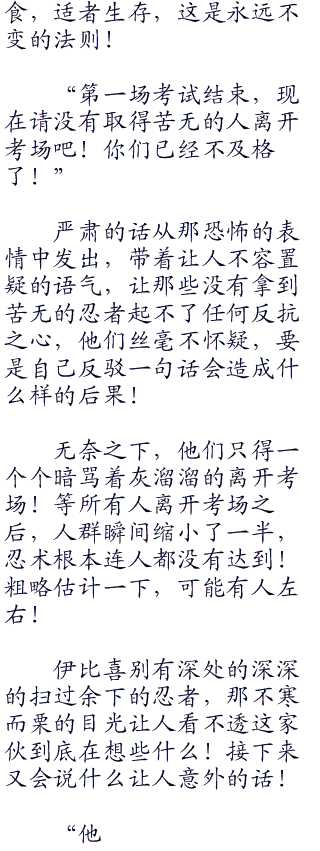 食，适者生存，这是永远不
变的法则！
“第一场考试结束，现
在请没有取得苦无的人离开
考场吧！你们已经不及格
了！”
严肃的话从那恐怖的表
情中发出，带着让人不容置
疑的语气，让那些没有拿到
苦无的忍者起不了任何反抗
之心，他们丝毫不怀疑，要
是自己反驳一句话会造成什
么样的后果！
无奈之下，他们只得一
个个暗骂着灰溜溜的离开考
场！等所有人离开考场之
后，人群瞬间缩小了一半，
忍术根本连人都没有达到！
粗略估计一下，可能有人左
右！
伊比喜别有深处的深深
的扫过余下的忍者，那不寒
而栗的目光让人看不透这家
伙到底在想些什么！接下来
又会说什么让人意外的话！
“他